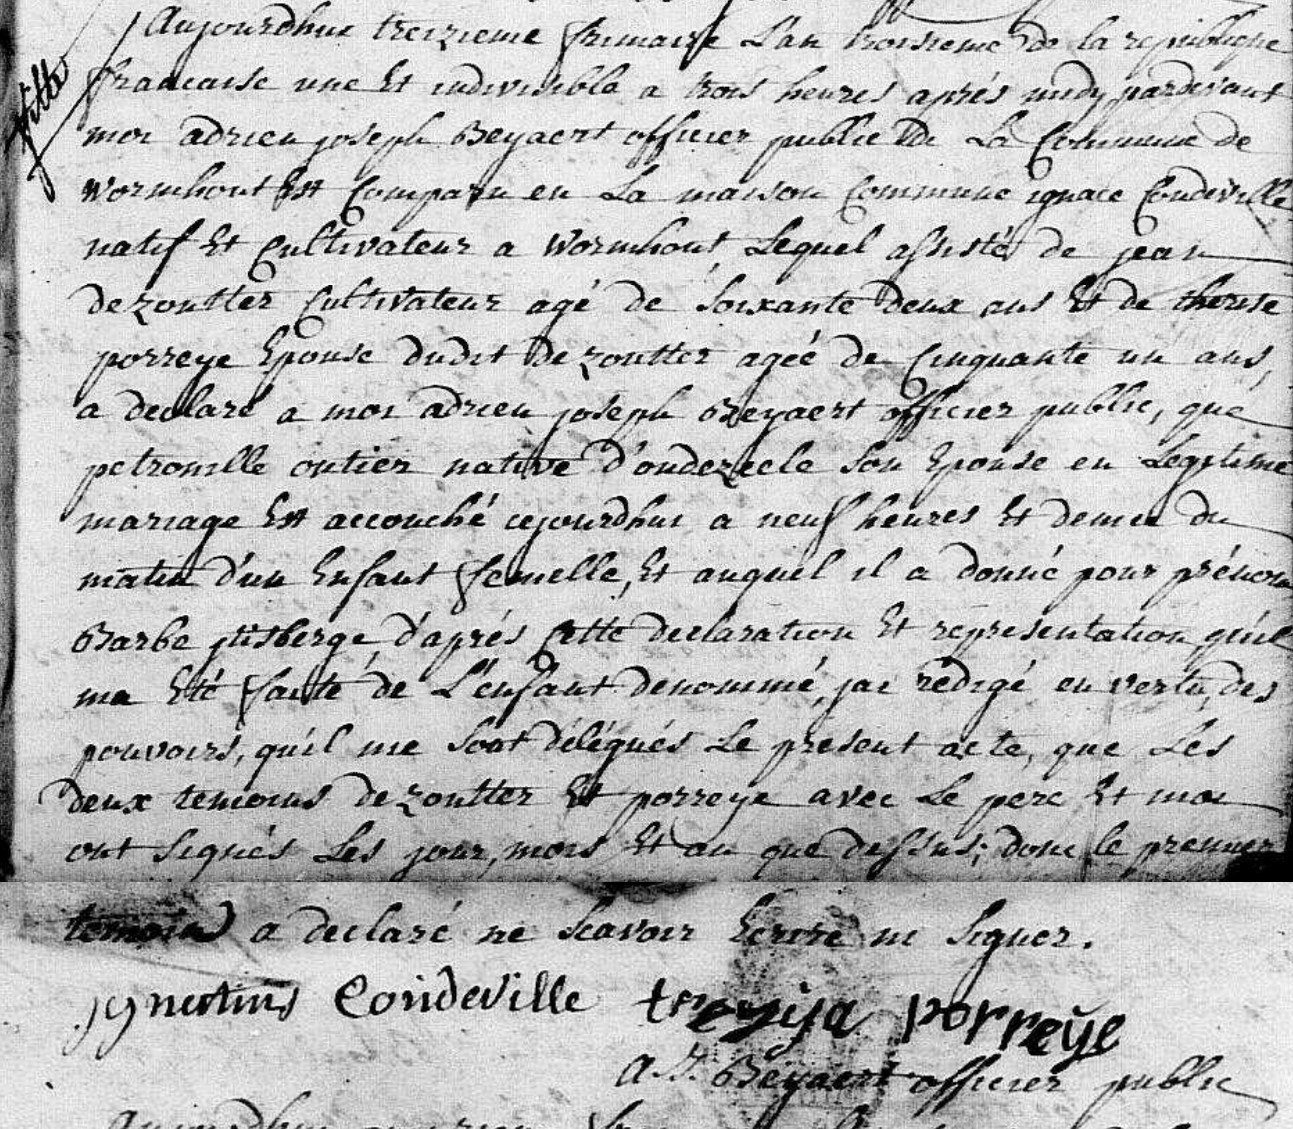 fille
Aujourdhui treizieme frimaire L'an troisieme de la republique
francaise une Et indivisible a trois heures aprés midy pardevant
moi adrien joseph Beyaert officier public de La Commune de
Wormhout Est Comparu en La maison Commune ignace Condeville
natif Et Cultivateur a Wormhout, Lequel assisté de jean
dezoutter Cultivateur agé de soixante deux ans Et de therese
porreye Epouse dudit dezoutter ageé de Cinquante un ans,
a declaré a moi adrien joseph Beyaert officier public, que
petronille outier native d'oudezeele son Epouse en Legitime
mariage Est accouché cejourdhui a neuf heures Et demie du
matin d'un Enfant femelle, Et auquel il a donné pour prénom
Barbe, d'aprés Cette declaration Et representation qu'il
ma Eté faite de L'enfant denommé, jai rédigé en vertu, des
pouvoirs, qu'il me sont délégués Le present acte, que Les
deux temoins dezoutter Et porreye avec Le pere Et moi
ont signés Les jour, mois Et an que dessus; donc le premier
temoin a declaré ne scavoir Ecrire ni signer.
jgnatius Condeville tresija porreye
A. J. Beyaert officier public
Aujourdhui